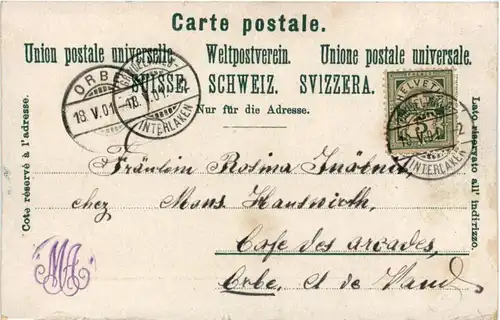 Carte postale.
Union postale universelle. Weltpostverein. Unione postale universale.
SUISSE. SCHWEIZ. SVIZZERA.
Nur für die Adresse.
Côté réservé à l'adresse.
Lato riservato all'indirizzo.
ORBE
18.V.01
18.V.01
INTERLAKEN
HELVETIA
INTERLAKEN
Fräulein Rosina
chez Mons Hauswirth,
Cafe des arcades,
Orbe, Ct de Vaud
MA